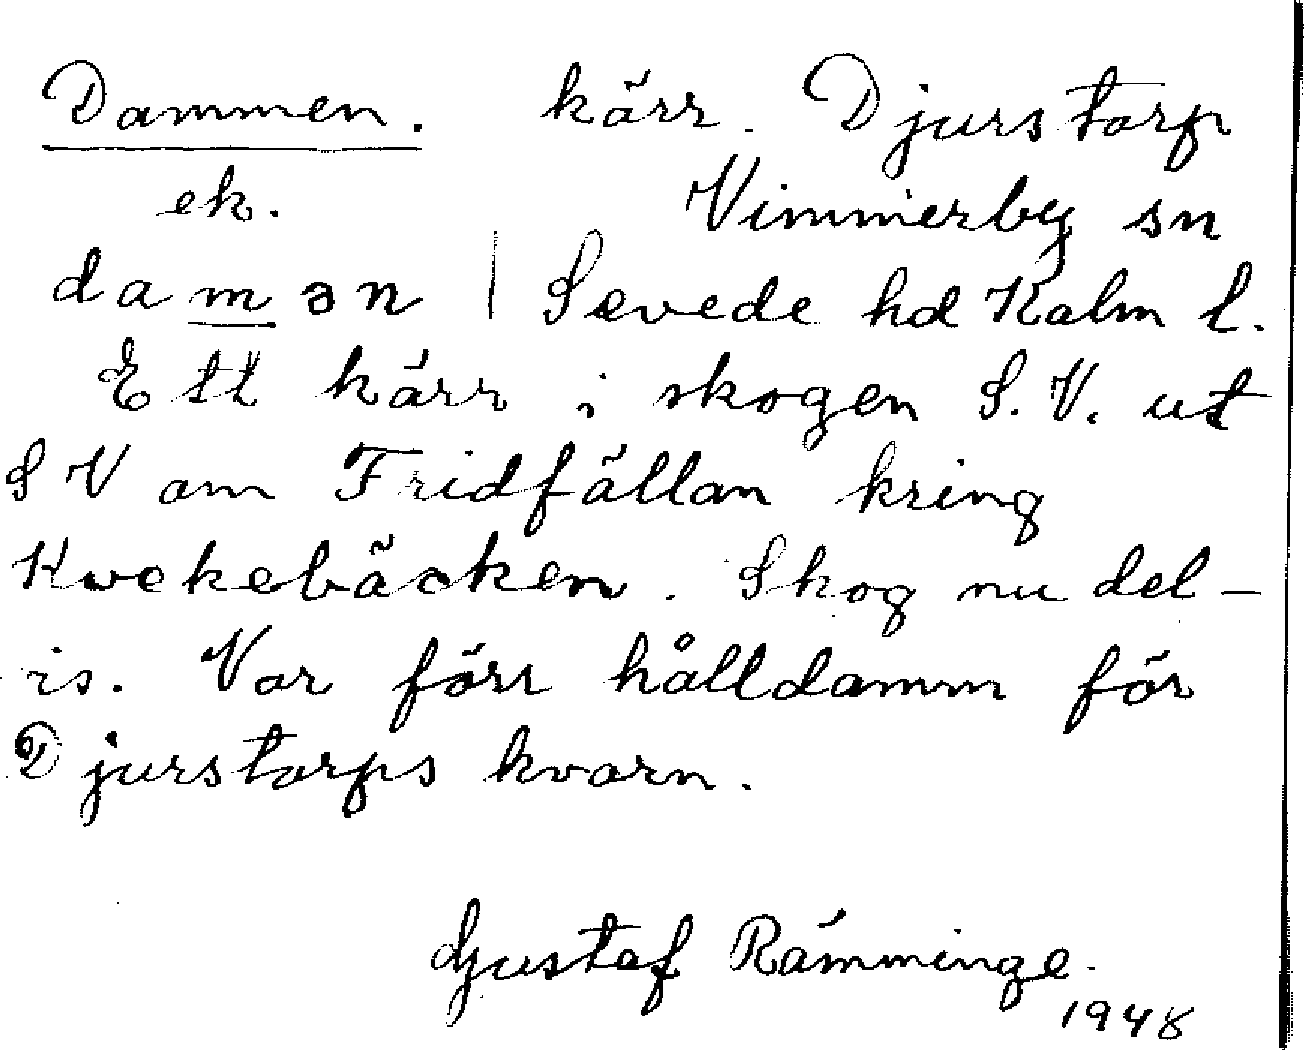 Dammen. kärr. Djurstorp
ek. Vimmerby sn
damən | Sevede hd Kalm l.
Ett kärr i skogen S.V. ut
SV om Fridfällan kring
Kvekebäcken. Skog nu del-
is. Var förr hålldamm för
Djurstorps kvarn.
Gustaf Rämminge.
1948